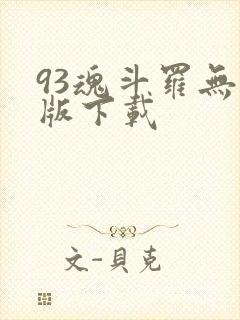 93魂斗羅無
版下載
文-貝克